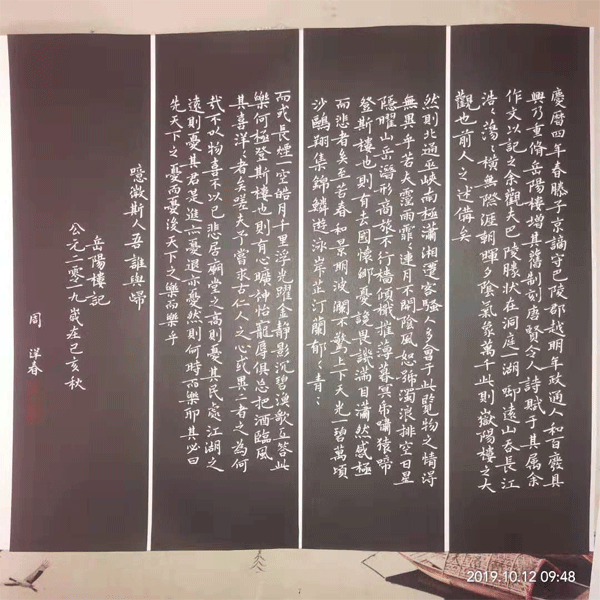 慶曆四年春滕子京謫守巴陵郡越明年政通人和百廢具
興乃重脩岳陽樓增其舊制刻唐賢今人詩賦于其属余
作文以記之余觀夫巴陵勝狀在洞庭一湖啣遠山吞長江
浩〻蕩〻橫無際涯朝暉夕陰氣象萬千此則嶽陽樓之大
觀也前人之述備矣
然則北通巫峽南極瀟湘遷客騷人多會于此覽物之情得
無異乎若夫霪雨霏〻連月不開陰風怒號濁浪排空日星
隱曜山岳潛形商旅不行檣傾楫摧薄暮冥〻虎嘯猿啼
登斯樓也則有去國懷鄉憂讒畏譏滿目蕭然感極
而悲者矣至若春和景明波瀾不驚上下天光一碧萬頃
沙鷗翔集錦鱗遊泳岸芷汀蘭郁〻青〻
而或長煙一空皓月千里浮光躍金靜影沉碧漁歌互答此
樂何極登斯樓也則有心曠神怡寵辱俱忘把酒臨風
其喜洋〻者矣嗟夫予嘗求古仁人之心或異二者之為何
哉不以物喜不以己悲居廟堂之高則憂其民處江湖之
遠則憂其君是進亦憂退亦憂然則何時而樂耶其必曰
先天下之憂而憂後天下之樂而樂乎
噫微斯人吾誰與歸
岳陽樓記
公元二零一九歲在己亥秋
周洋春
2019.10.12 09:48